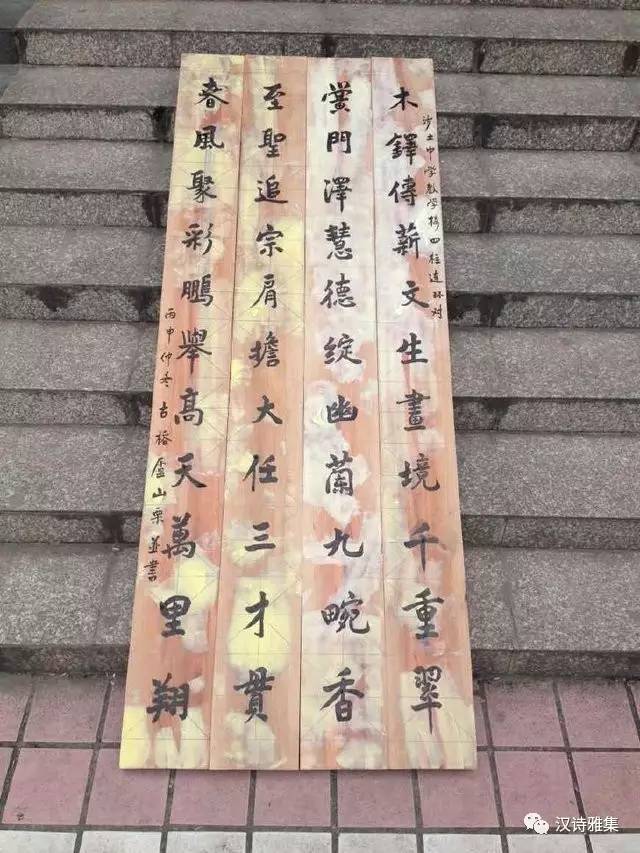 沙土中学教学楼四柱连环对
木鐸傳薪文生畫境千重翠
黌門澤慧德綻幽蘭九畹香
至聖追宗肩擔大任三才貫
春風聚彩鵬舉高天萬里翔
丙申仲冬古榕盧山栗並書
汉诗雅集